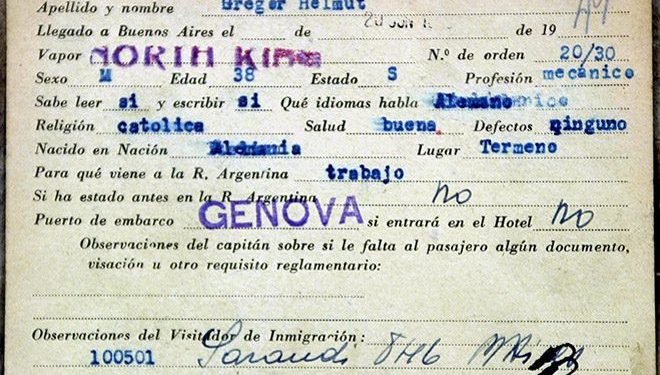 Apellido y nombre Gregor Helmut
Llegado a Buenos Aires el de 20 JUN de 19
Vapor NORTH KING N.º de orden 20/30
Sexo M Edad 38 Estado S Profesión mecánico
Sabe leer si y escribir si Qué idiomas habla Alemano
Religión catolica Salud buena. Defectos ninguno
Nacido en Nación Alemania Lugar Termeno
Para qué viene a la R. Argentina trabajo
Si ha estado antes en la R. Argentina NO
Puerto de embarco GENOVA si entrará en el Hotel No
Observaciones del capitán sobre si le falta al pasajero algún documento,
visación u otro requisito reglamentario:
Observaciones del Visitador de Inmigración:
100501 Sarandi